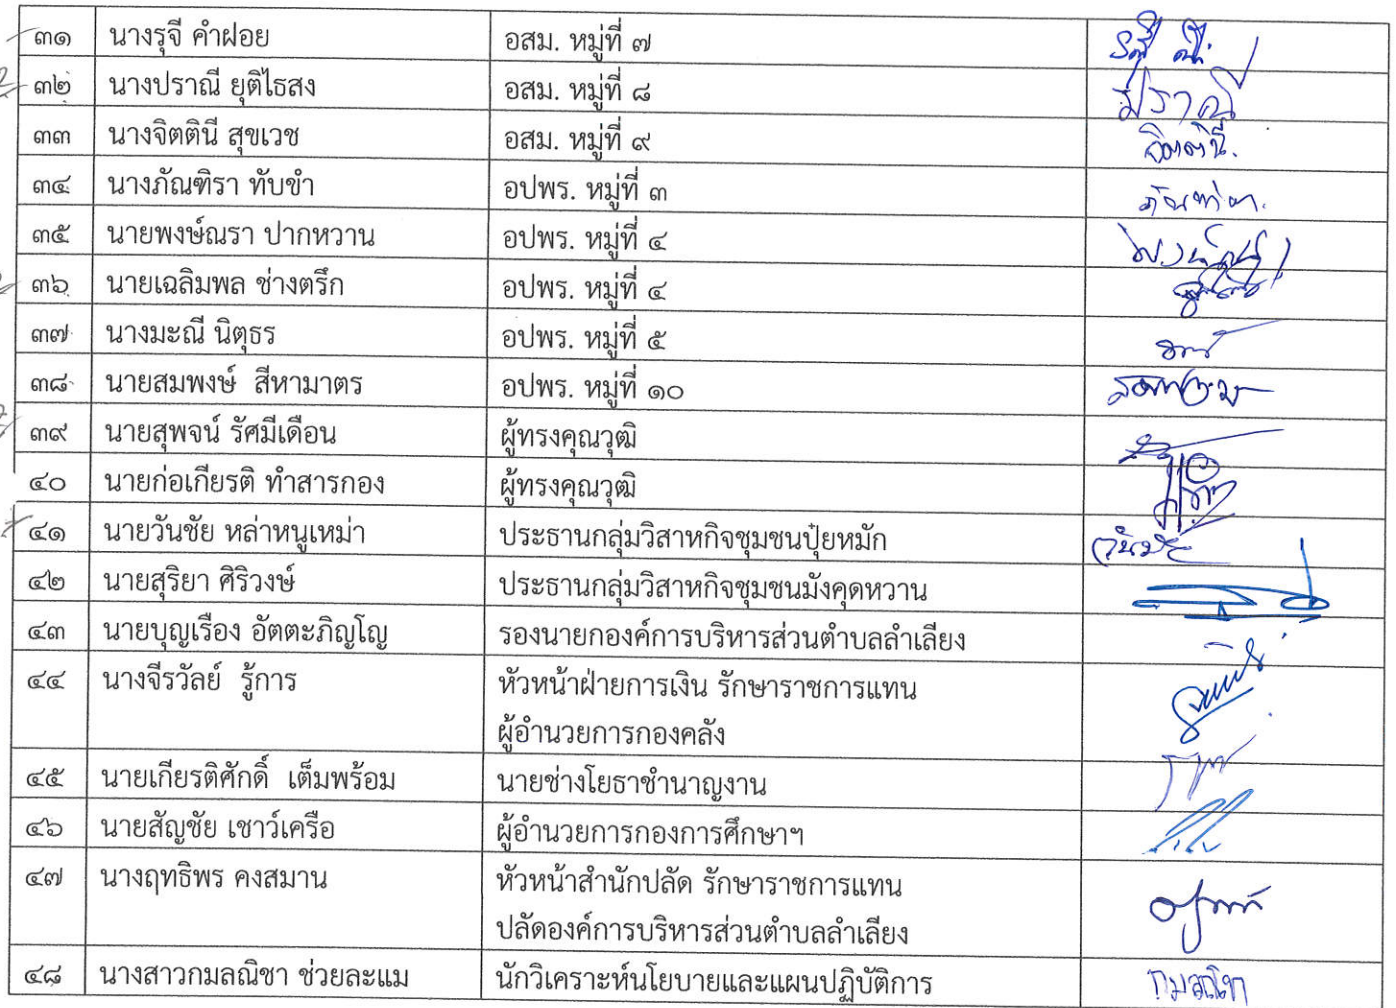 ๓๑ นางรุจี คำฝอย อสม. หมู่ที่ ๗
๓๒ นางปราณี ยุติไธสง อสม. หมู่ที่ ๘ ปราณี
๓๓ นางจิตตินี สุขเวช อสม. หมู่ที่ ๙ จิตตินี.
๓๔ นางภัณฑิรา ทับขำ อปพร. หมู่ที่ ๓
๓๕ นายพงษ์ณรา ปากหวาน อปพร. หมู่ที่ ๔
๓๖ นายเฉลิมพล ช่างตรึก อปพร. หมู่ที่ ๔
๓๗ นางมะณี นิตุธร อปพร. หมู่ที่ ๕
๓๘ นายสมพงษ์ สีหามาตร อปพร. หมู่ที่ ๑๐
๓๙ นายสุพจน์ รัศมีเดือน ผู้ทรงคุณวุฒิ
๔๐ นายก่อเกียรติ ทำสารกอง ผู้ทรงคุณวุฒิ
๔๑ นายวันชัย หล่าหนูเหม่า ประธานกลุ่มวิสาหกิจชุมชนปุ๋ยหมัก วันชัย
๔๒ นายสุริยา ศิริวงษ์ ประธานกลุ่มวิสาหกิจชุมชนมังคุดหวาน
๔๓ นายบุญเรือง อัตตะภิญโญ รองนายกองค์การบริหารส่วนตำบลลำเลียง
๔๔ นางจีรวัลย์ รู้การ หัวหน้าฝ่ายการเงิน รักษาราชการแทน
ผู้อำนวยการกองคลัง
๔๕ นายเกียรติศักดิ์ เต็มพร้อม นายช่างโยธาชำนาญงาน
๔๖ นายสัญชัย เชาว์เครือ ผู้อำนวยการกองการศึกษาฯ
๔๗ นางฤทธิพร คงสมาน หัวหน้าสำนักปลัด รักษาราชการแทน
ปลัดองค์การบริหารส่วนตำบลลำเลียง
๔๘ นางสาวกมลณิชา ช่วยละแม นักวิเคราะห์นโยบายและแผนปฏิบัติการ กมลณิชา